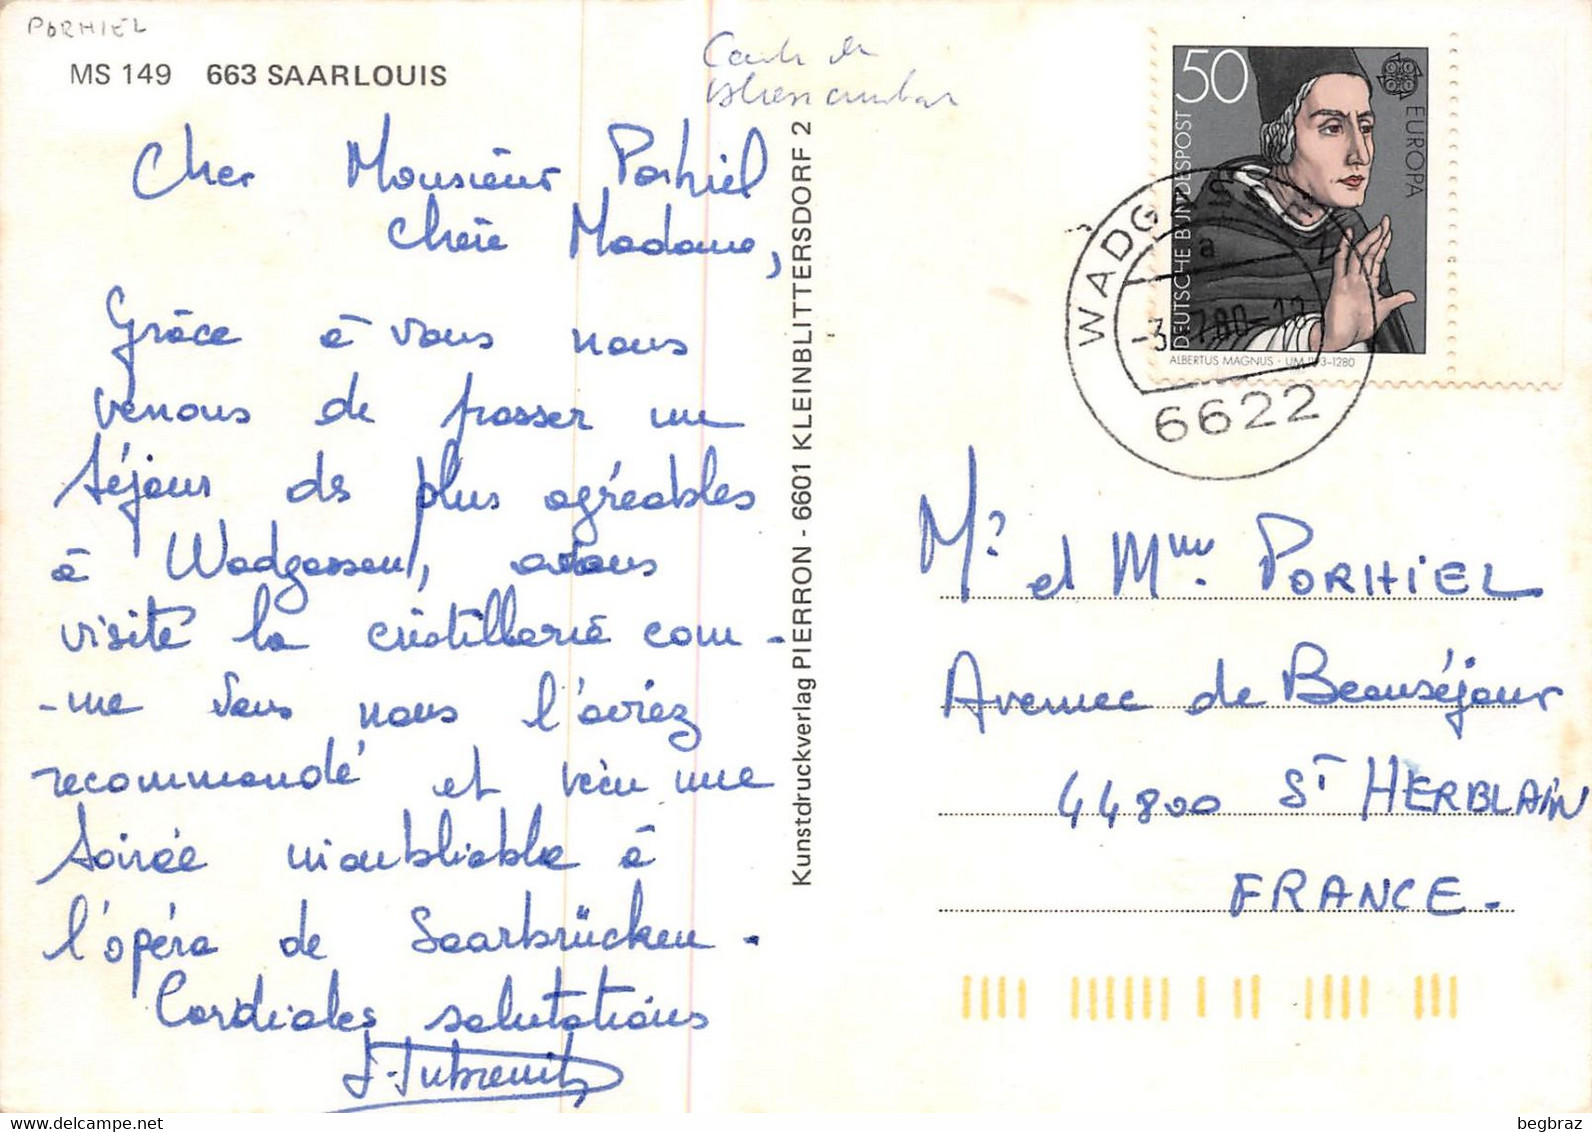 PORHIEL
MS 149 663 SAARLOUIS
Cher Monsieur Porhiel
Chère Madame,
Grâce à vous nous
venons de passer un
séjour des plus agréables
à Wadgassen, avons
visité la cristallerie com-
-me vous nous l'aviez
recommandé et vécu une
soirée inoubliable à
l'opéra de Saarbrücken.
Cordiales salutations
Kunstdruckverlag PIERRON - 6601 KLEINBLITTERSDORF 2
50
EUROPA
DEUTSCHE BUNDESPOST
ALBERTUS MAGNUS · UM 1193–1280
a
6622
Mr et Mme. PORHIEL
Avenue de Beauséjour
44800 ST HERBLAIN
FRANCE.
begbraz